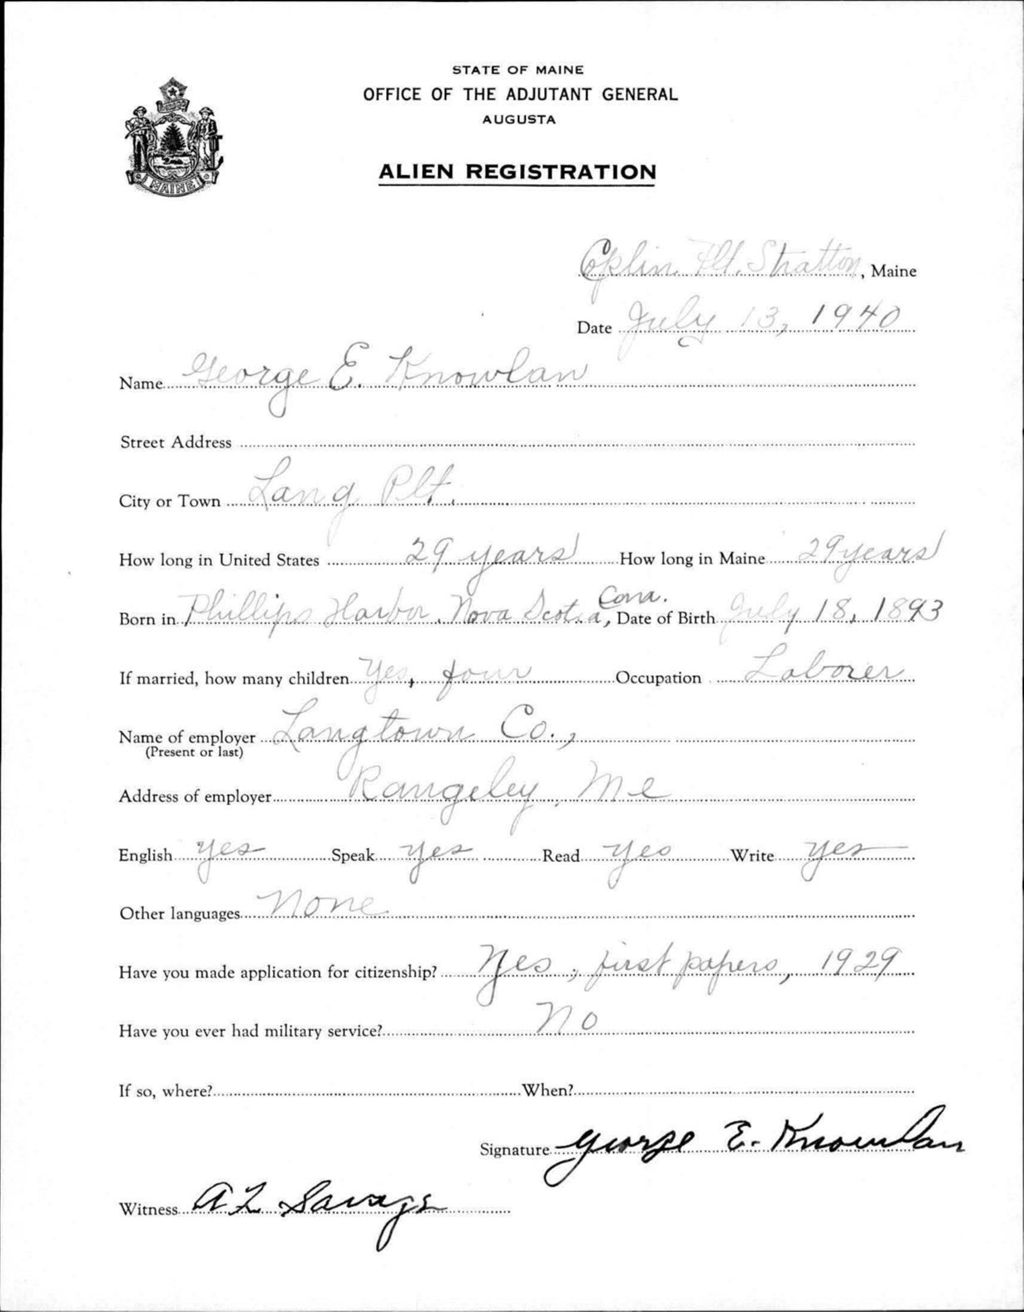 STATE OF MAINE
OFFICE OF THE ADJUTANT GENERAL
AUGUSTA
ALIEN REGISTRATION
MAINE
Coplin Plt. Stratton, Maine
Date July 13, 1940
Name George E. Knowlan
Street Address
City or Town Lang Plt.
How long in United States 29 years How long in Maine 29 years
Born in Phillips Harbor, Nova Scotia, Cana. Date of Birth July 18, 1893
If married, how many children Yes, four Occupation Laborer
Name of employer Langtown Co.,
(Present or last)
Address of employer Rangeley, Me
English yes Speak yes Read yes Write yes
Other languages None
Have you made application for citizenship? Yes, first papers, 1929
Have you ever had military service? No
If so, where? When?
Signature George E. Knowlan
Witness A L Savage